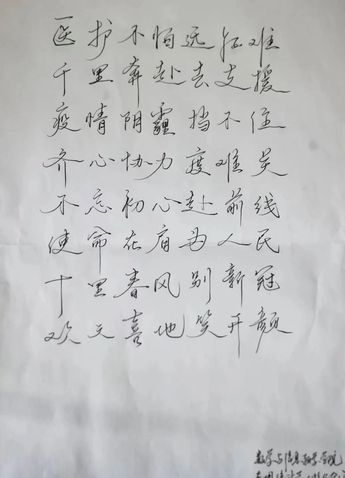 医护不怕远征难
千里奔赴去支援
疫情阴霾挡不住
齐心协力度难关
不忘初心赴前线
使命在肩为人民
十里春风别新冠
欢天喜地笑开颜
数学与信息科学学院